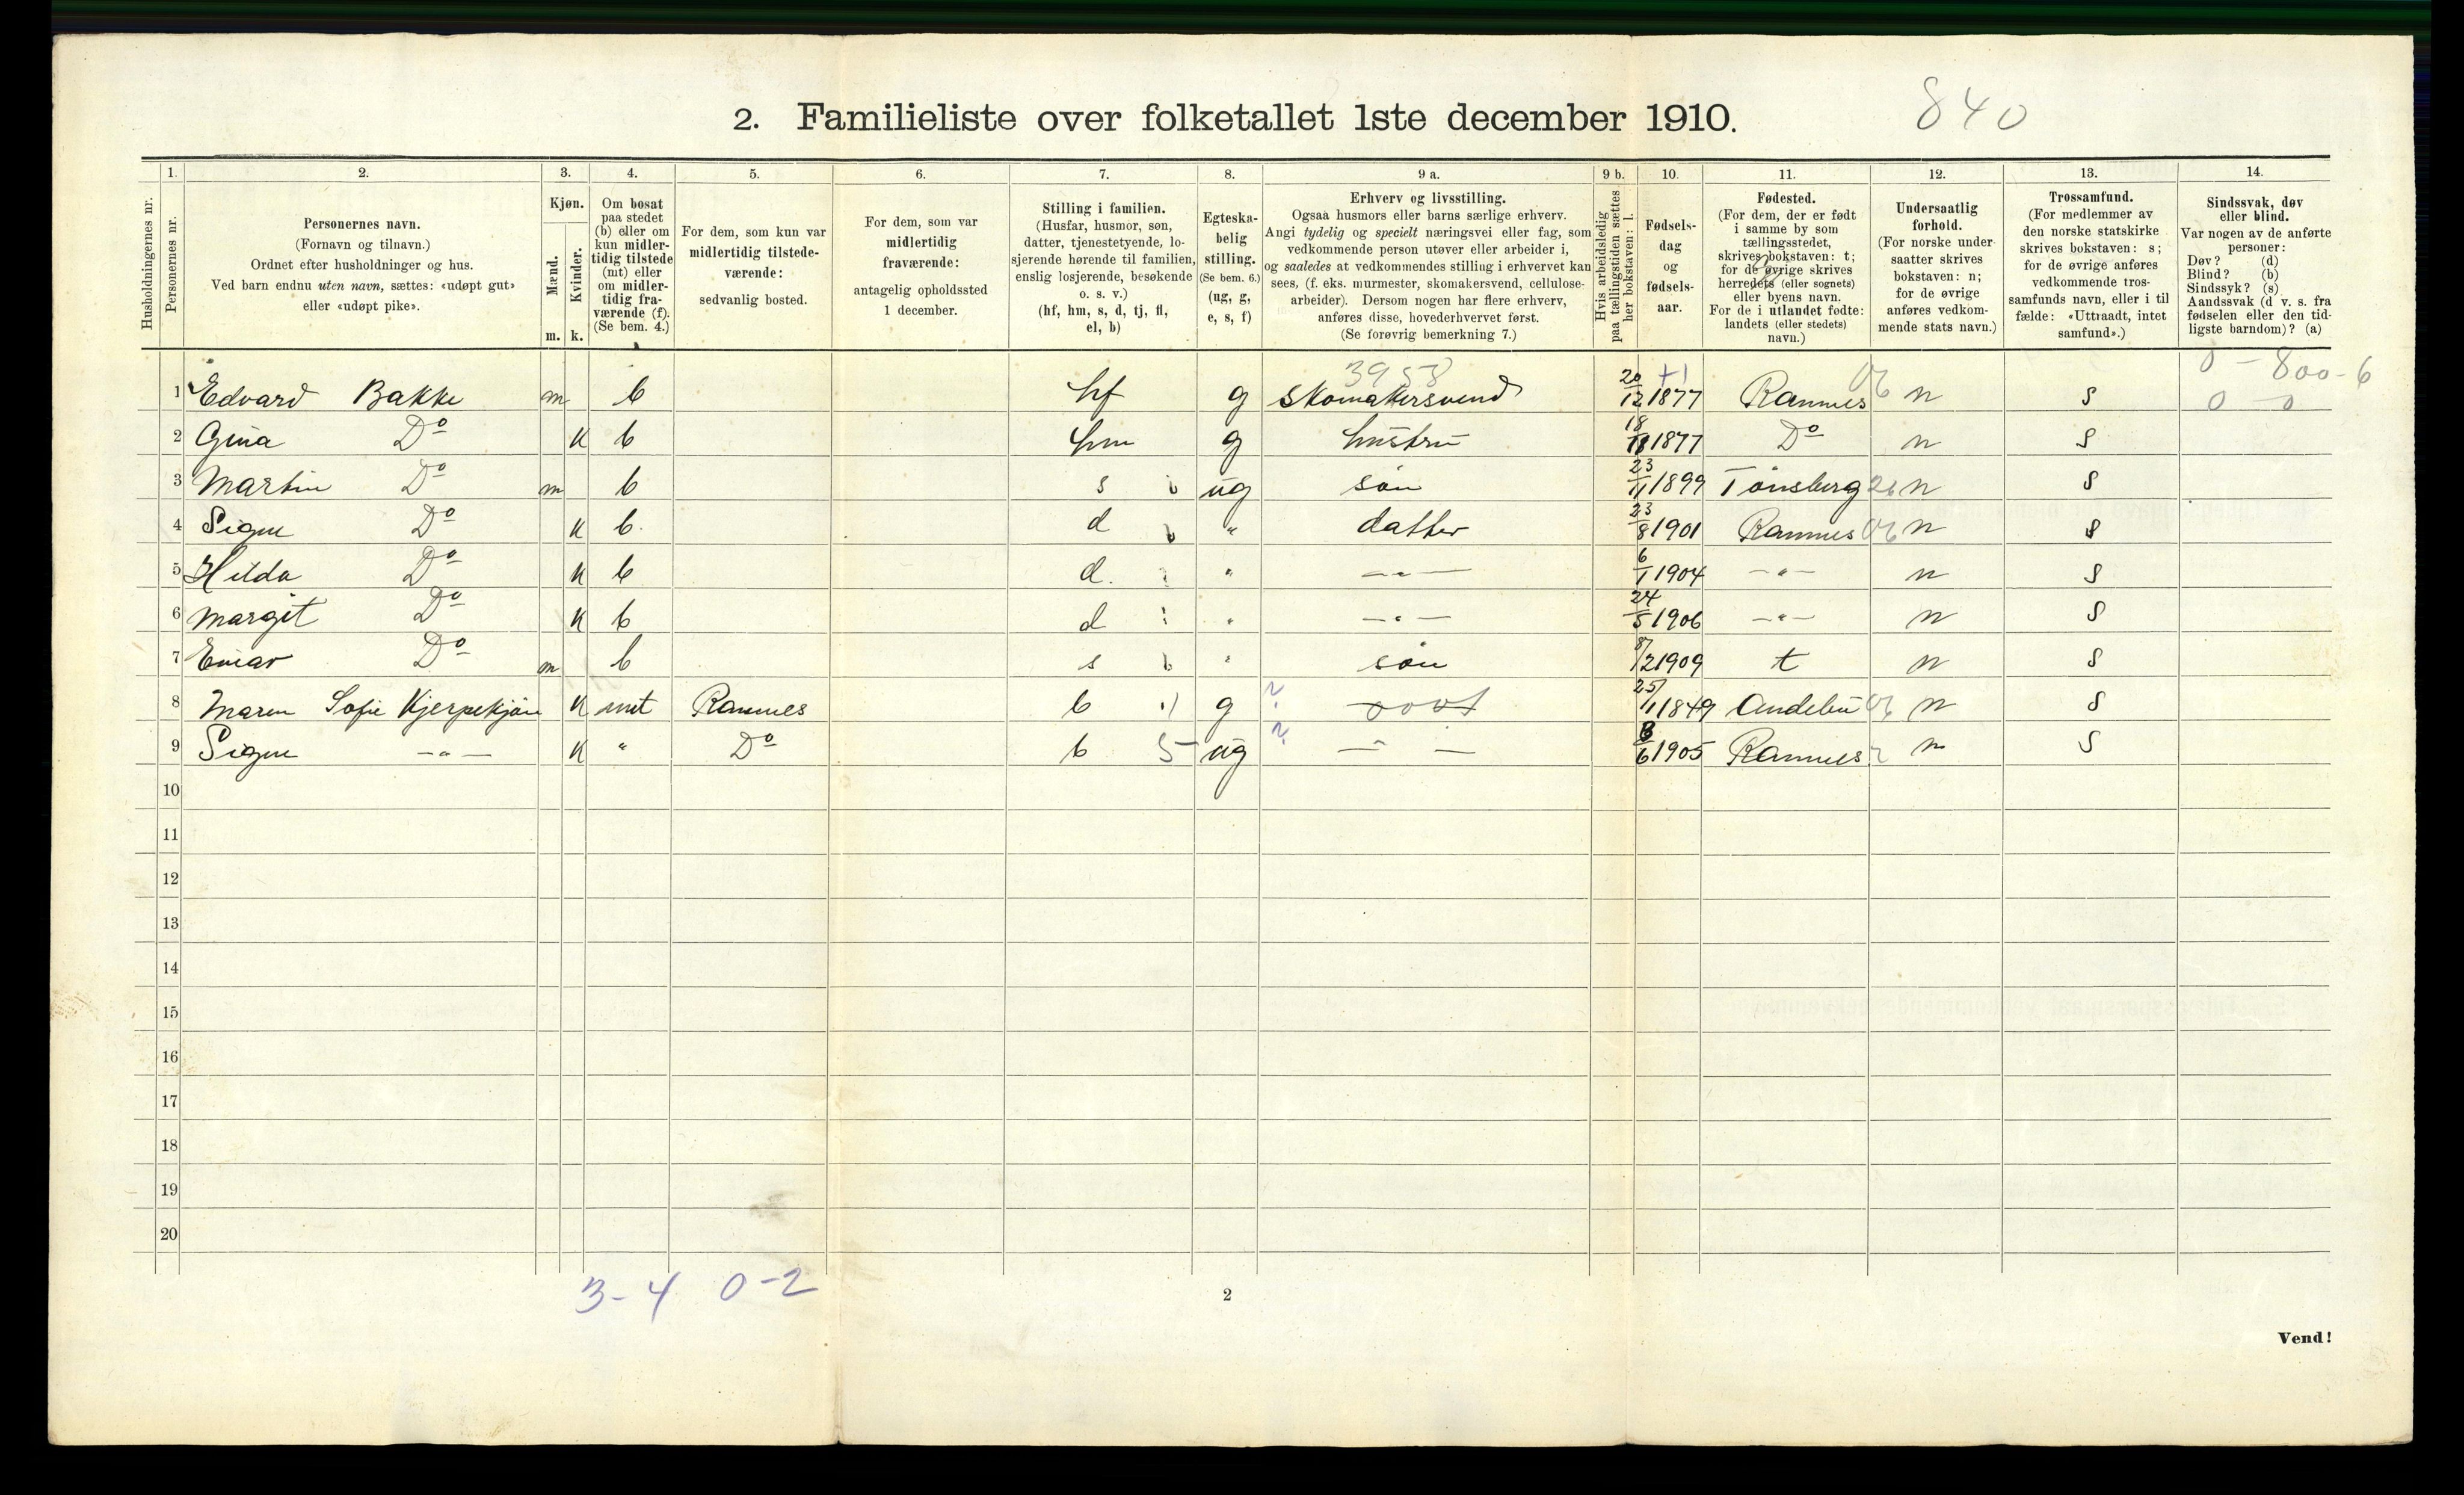 2. Familieliste over folketallet 1ste december 1910.
840
Husholdningernes nr.
1. Personernes nr.
2. Personernes navn.
(Fornavn og tilnavn.)
Ordnet efter husholdninger og hus.
Ved barn endnu uten navn, sættes: «udøpt gut»
eller «udøpt pike».
3. Kjøn.
Mænd. Kvinder.
m. k.
4. Om bosat
paa stedet
(b) eller om
kun midler-
tidig tilstede
(mt) eller
om midler-
tidig fra-
værende (f).
(Se bem. 4.)
5. For dem, som kun var
midlertidig tilstede-
værende:
sedvanlig bosted.
6. For dem, som var
midlertidig
fraværende:
antagelig opholdssted
1 december.
7. Stilling i familien.
(Husfar, husmor, søn,
datter, tjenestetyende, lo-
sjerende hørende til familien,
enslig losjerende, besøkende
o. s. v.)
(hf, hm, s, d, tj, fl,
el, b)
8. Egteska-
belig
stilling.
(Se bem. 6.)
(ug, g,
e, s, f)
9 a. Erhverv og livsstilling.
Ogsaa husmors eller barns særlige erhverv.
Angi tydelig og specielt næringsvei eller fag, som
vedkommende person utøver eller arbeider i,
og saaledes at vedkommendes stilling i erhvervet kan
sees, (f. eks. murmester, skomakersvend, cellulose-
arbeider). Dersom nogen har flere erhverv,
anføres disse, hovederhvervet først.
(Se forøvrig bemerkning 7.)
9 b. Hvis arbeidsledig
paa tællingstiden sættes
her bokstaven: l.
10. Fødsels-
dag
og
fødsels-
aar.
11. Fødested.
(For dem, der er født
i samme by som
tællingsstedet,
skrives bokstaven: t;
for de øvrige skrives
herredets (eller sognets)
eller byens navn.
For de i utlandet fødte:
landets (eller stedets)
navn.)
12. Undersaatlig
forhold.
(For norske under-
saatter skrives
bokstaven: n;
for de øvrige
anføres vedkom-
mende stats navn.)
13. Trossamfund.
(For medlemmer av
den norske statskirke
skrives bokstaven: s;
for de øvrige anføres
vedkommende tros-
samfunds navn, eller i til
fælde: «Uttraadt, intet
samfund».)
14. Sindssvak, døv
eller blind.
Var nogen av de anførte
personer:
Døv? (d)
Blind? (b)
Sindssyk? (s)
Aandssvak (d v. s. fra
fødselen eller den tid-
ligste barndom)? (a)
3958 +1 0 - 800-6
1 Edvard Bakke m b hf g Skomakersvend 20/12 1877 Ramnes n s 0 0
2 Gina Do k b hm g hustru 18/11 1877 Do n s
3 Martin Do m b s ug søn 23/11 1899 Tønsberg n s
4 Signe Do k b. d " datter 23/8 1901 Ramnes n s
5 Hilda Do k b d. " —"— 6/1 1904 —"— n s
6 Margit Do k b d " —"— 24/5 1906 —"— n s
7 Einar Do m b s " søn 8/2 1909 t n s
8 Maren Sofie Kjerpekjøn k mt Ramnes b g ? 25/11 1849 Andebu n s
9 Signe —"— k " Do b 5 ug ? — " — 6 1905 Ramnes n s
10
11
12
13
14
15
16
17
18
19
20
3-4 0-2
2
Vend!